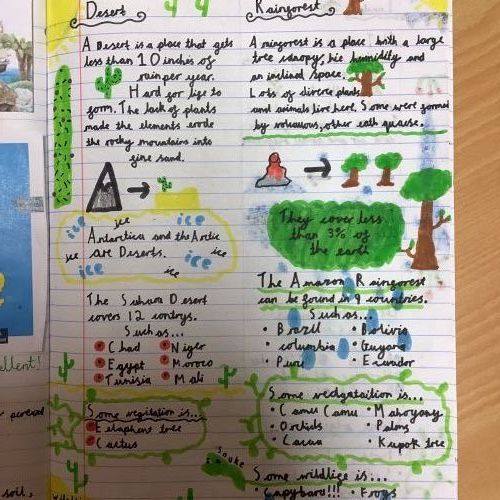 Desert
A Desert is a place that gets
less than 10 inches of
rain per year.
Hard for life to
form. The lack of plants
made the elements erode
the rocky mountains into
fine sand.
ice ice ice
Antarctica and the Arctic
ice are Deserts. ice
ice ice
The Saharn Desert
covers 12 contrys.
Such as...
Chad Niger
Egypt Moroco
Tunisia Mali
Some vegitation is...
Elaphent tree
Cactus
Snake
Rainforest
A rainforest is a place with a large
tree canopy, hie humidity and
an inclined space.
Lots of diverce plants
and animals live here. Some were formed
by volcanous, other eath quacse.
They cover less
than 3% of
the earth
The Amazon Rainforest
can be found in 9 countries.
Such as...
Brazil Bolivia
columbia Guyana
Peru Ecuador
Some vedgataition is...
Camu Camu Mahogany
Orchids Palms
Cacau Kapok tree
Some wildlife is...
Capybara!!! Frogs
ellent!
soil,